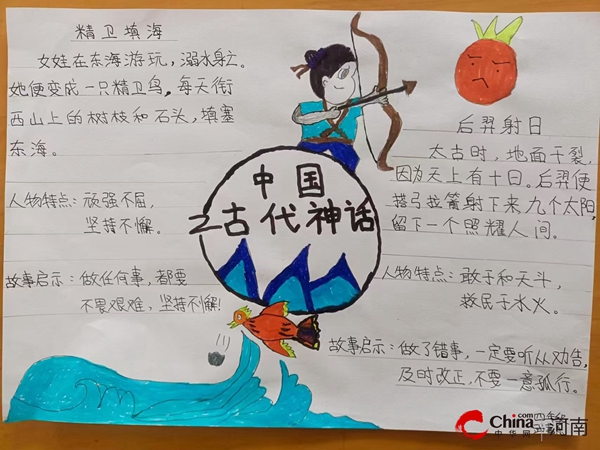 精卫填海
女娃在东海游玩,溺水身亡。
她便变成一只精卫鸟,每天衔
西山上的树枝和石头,填塞
东海。
人物特点:顽强不屈,
坚持不懈。
故事启示:做任何事,都要
不畏艰难,坚持不懈!
中国
之古代神话
后羿射日
太古时,地面干裂,
因为天上有十日。后羿便
搭弓拉箭射下来九个太阳,
留下一个照耀人间。
人物特点:敢于和天斗,
救民于水火。
故事启示:做了错事,一定要听从劝告,
及时改正,不要一意孤行。
China.com
中华网 河南